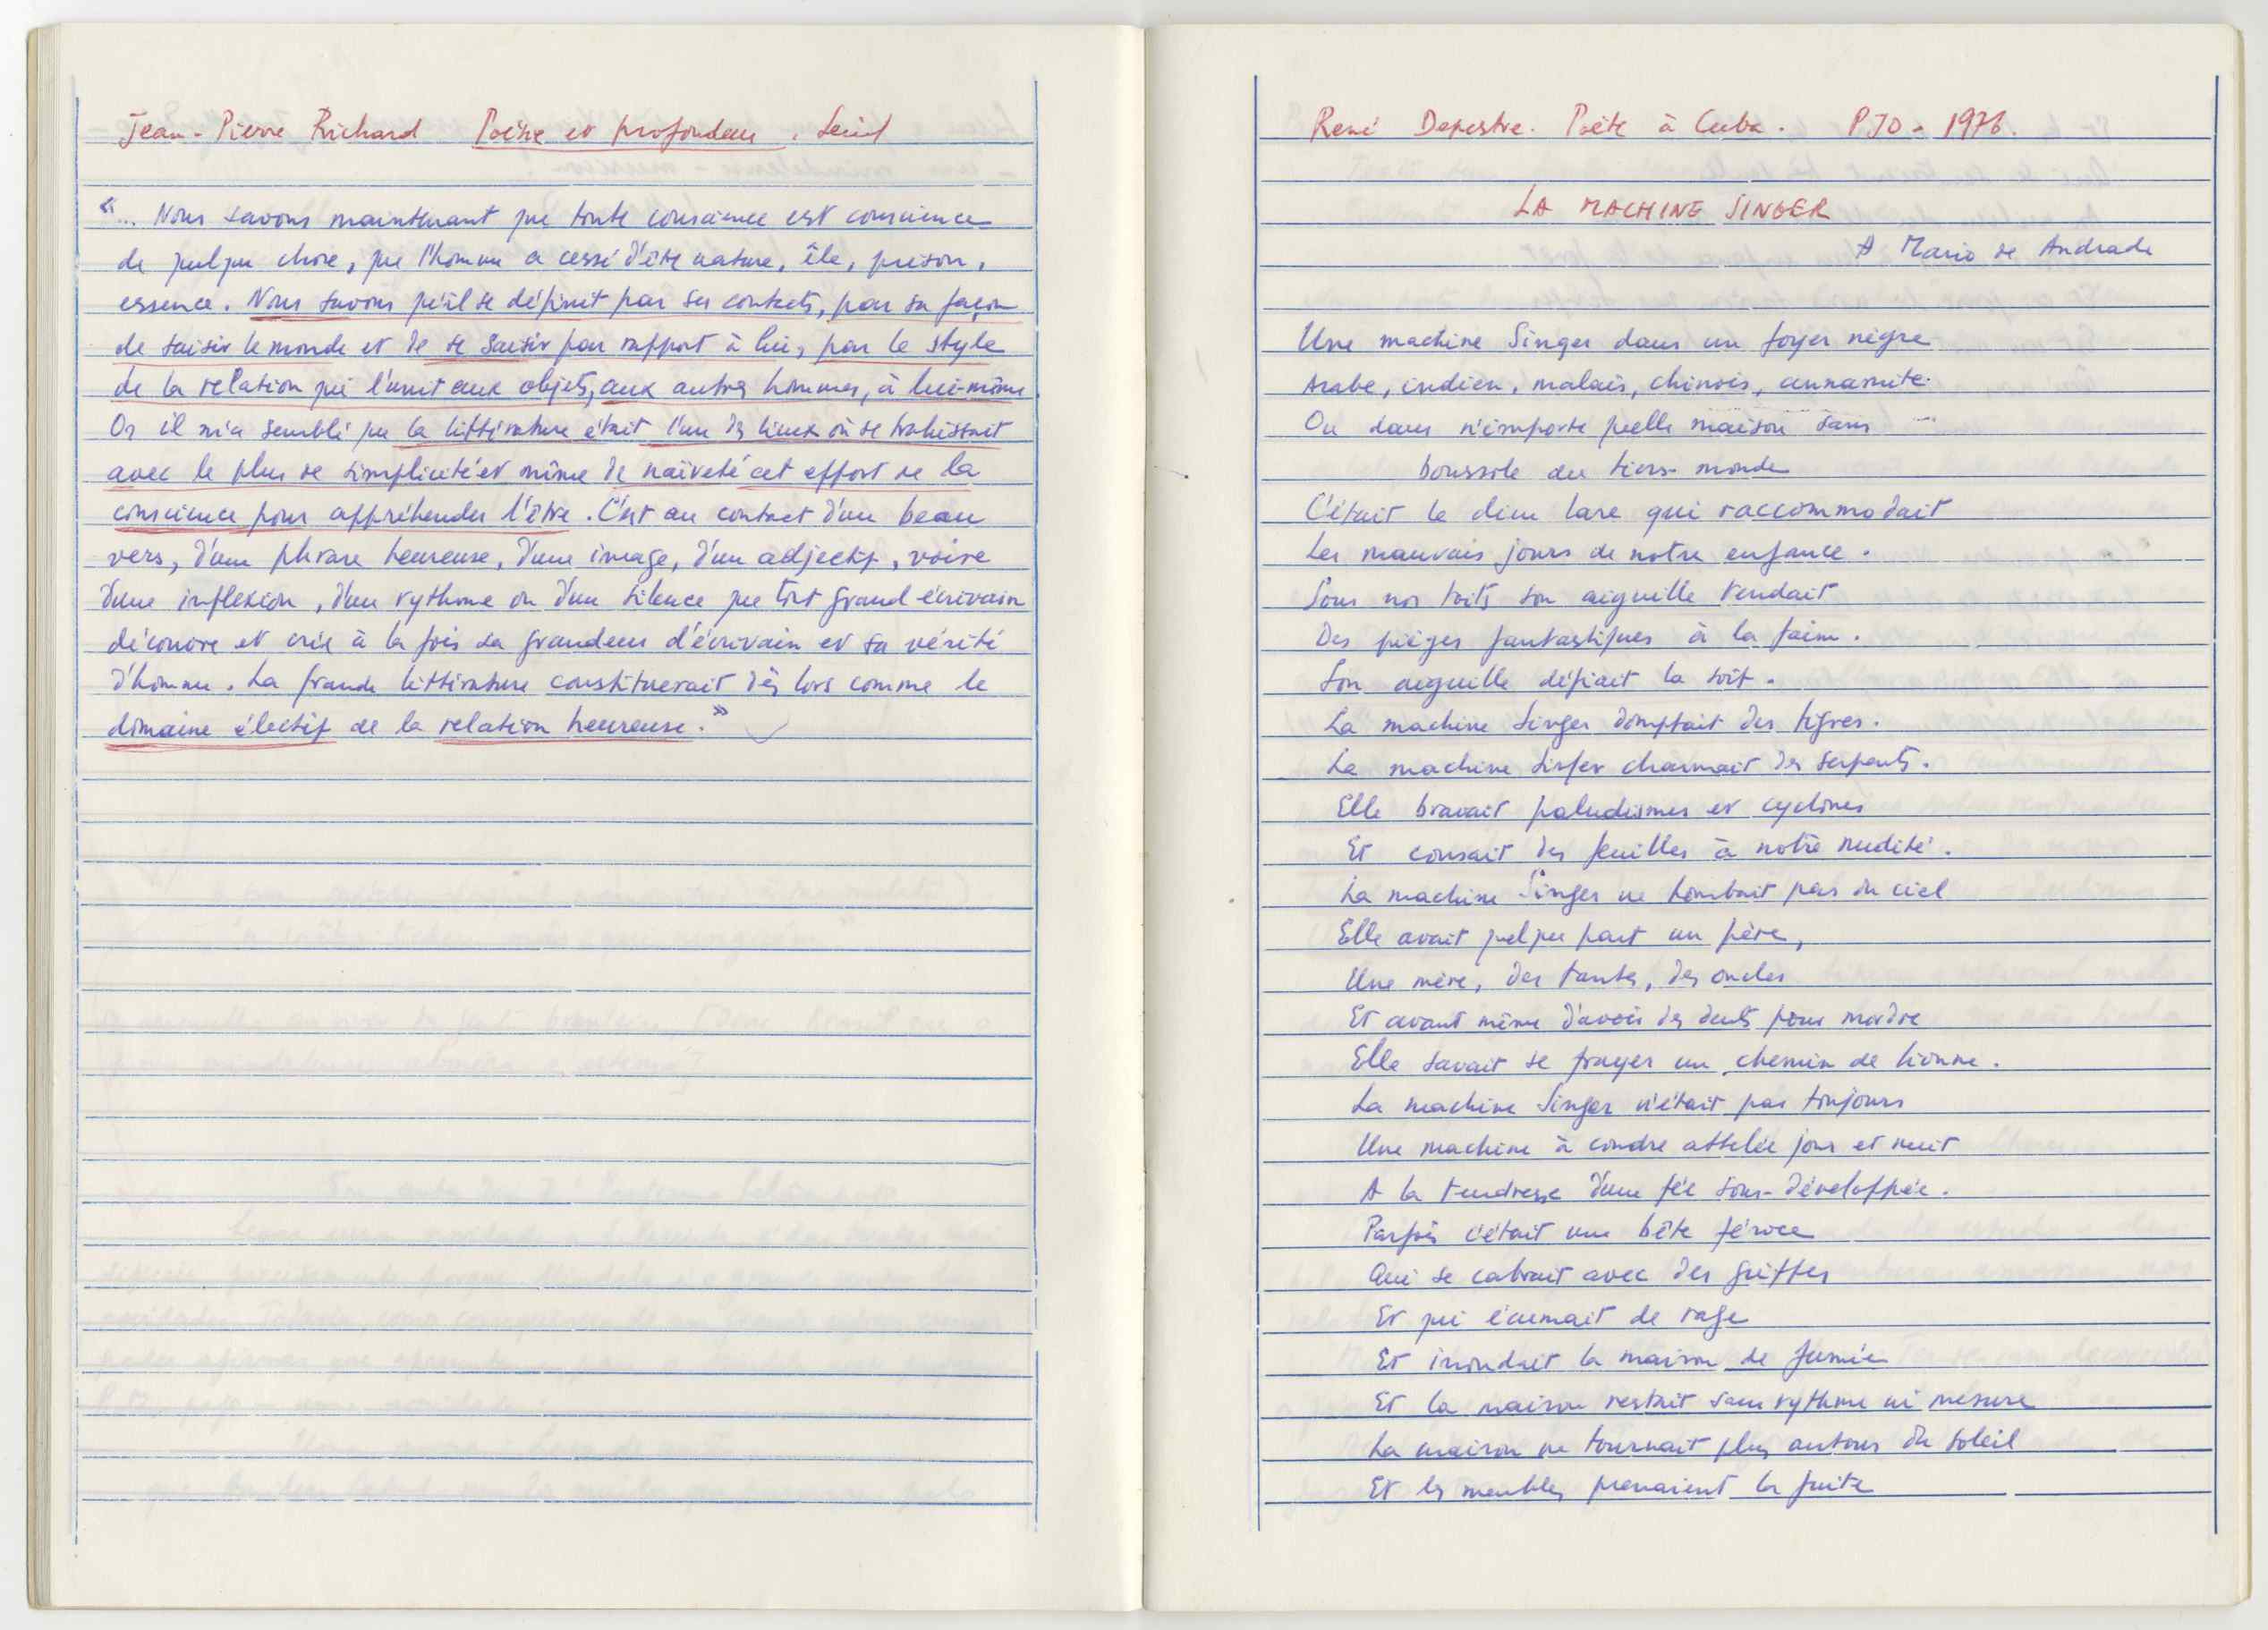 Jean-Pierre Richard Poésie et profondeur. Seuil
"... Nous savons maintenant que toute conscience est conscience
de quelque chose, que l'homme a cessé d'être nature, île, prison,
essence. Nous savons qu'il se définit par ses contacts, par sa façon
de saisir le monde et de se saisir par rapport à lui, par le style
de la relation qui l'unit aux objets, aux autres hommes, à lui-même.
Or il m'a semblé que la littérature était l'un des lieux où se trahissait
avec le plus de simplicité et même de naïveté cet effort de la
conscience pour appréhender l'être. C'est au contact d'un beau
vers, d'une phrase heureuse, d'une image, d'un adjectif, voire
d'une inflexion, d'un rythme ou d'un silence que tout grand écrivain
découvre et crée à la fois sa grandeur d'écrivain et sa vérité
d'homme. La grande littérature constituerait dès lors comme le
domaine électif de la relation heureuse."
René Depestre. Poète à Cuba. PJO - 1976.
LA MACHINE SINGER
A Mario de Andrade
Une machine Singer dans un foyer nègre
Arabe, indien, malais, chinois, annamite
Ou dans n'importe quelle maison sans
boussole du tiers-monde
C'était le dieu lare qui raccommodait
Les mauvais jours de notre enfance.
Sous nos toits son aiguille tendait
Des pièges fantastiques à la faim.
Son aiguille défiait la soif.
La machine Singer domptait des tigres.
La machine Singer charmait des serpents.
Elle bravait paludismes et cyclones
Et cousait des feuilles à notre nudité.
La machine Singer ne tombait pas du ciel
Elle avait quelque part un père,
Une mère, des tantes, des oncles
Et avant même d'avoir des dents pour mordre
Elle savait se frayer un chemin de lionne.
La machine Singer n'était pas toujours
Une machine à coudre attelée jour et nuit
A la tendresse d'une fée sous-développée.
Parfois c'était une bête féroce
Qui se cabrait avec des griffes
Et qui écumait de rage
Et inondait la maison de fumée
Et la maison restait sans rythme ni mesure
La maison ne tournait plus autour du soleil
Et les meubles prenaient la fuite